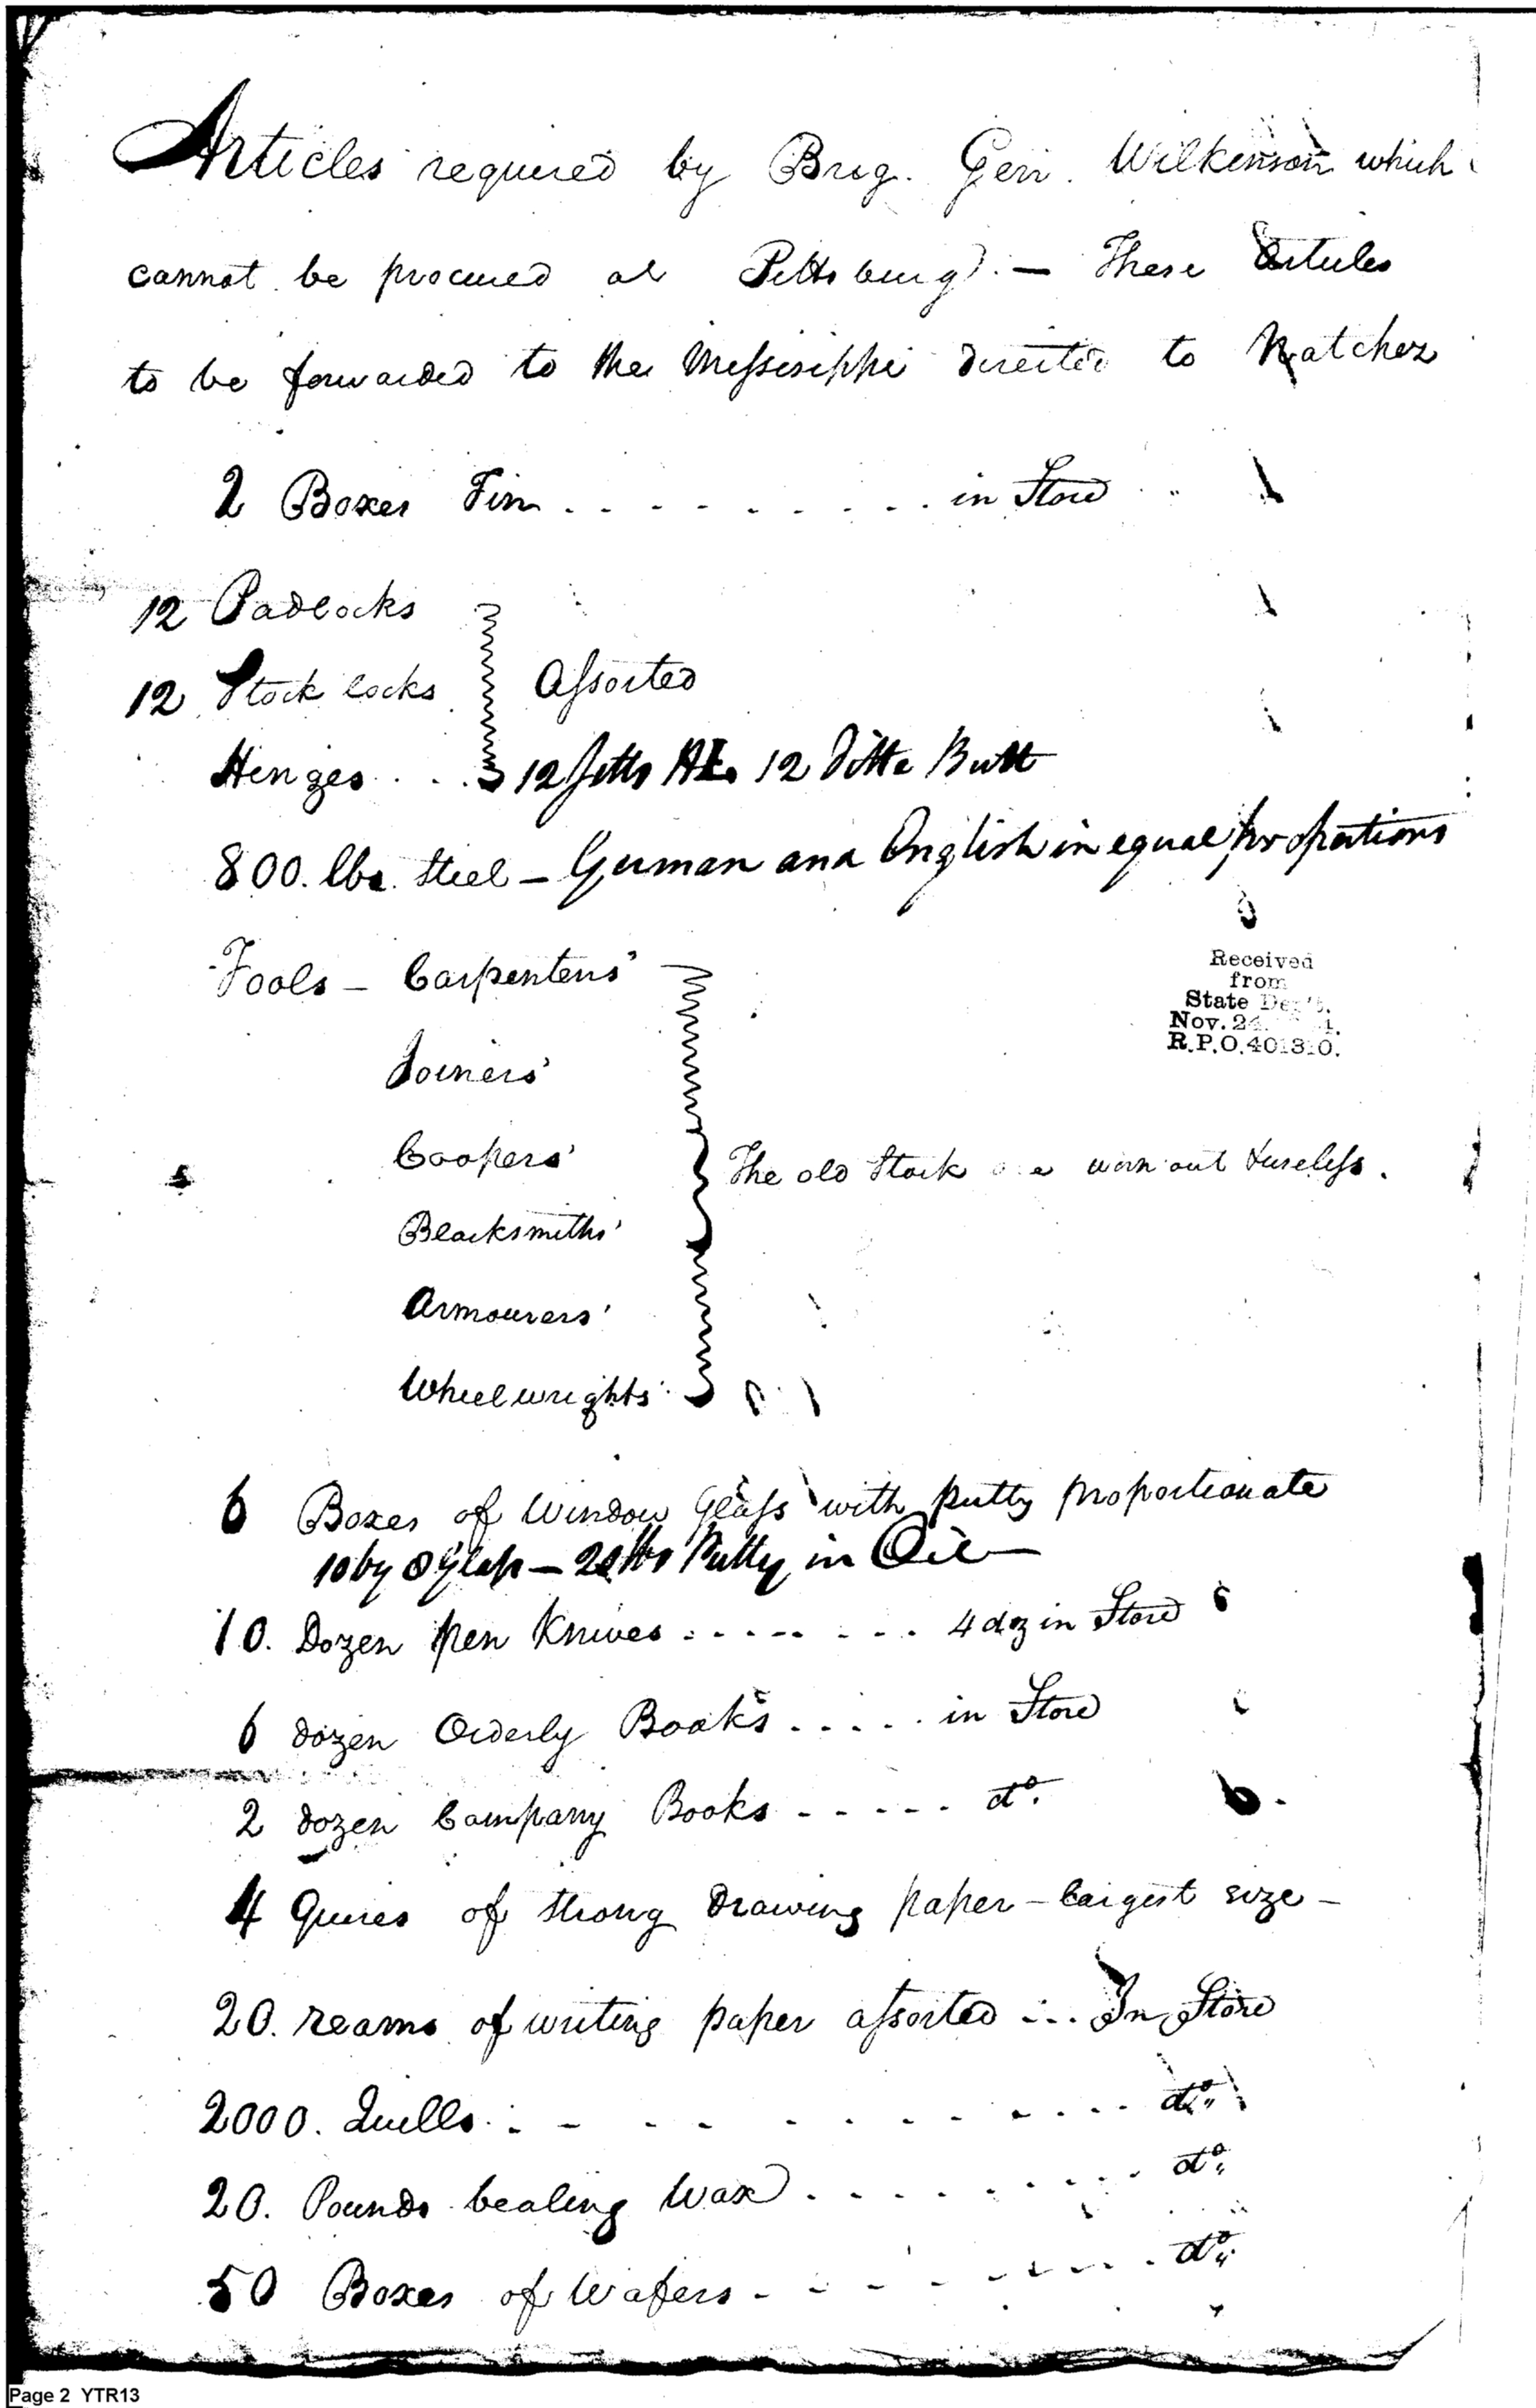 Articles required by Brig. Gen. Wilkinson which
cannot be procured at Pittsburg. — These Articles
to be forwarded to the Mississippi directed to Natchez
2 Boxes Tin . . . . . . . . . . in Store
12 Padlocks
12 Stock locks Assorted
Hinges . . . 12 setts HL 12 Ditto Butt
800. lbs. Steel — German and English in equal proportions
Received
from
State Dep't.
Nov. 24.
R.P.O. 401310.
Tools — Carpenters'
Joiners'
Coopers' The old Stock are worn out & useless.
Blacksmiths'
Armourers'
Wheelwrights'
6 Boxes of Window Glass with putty proportionate
10 by 8 Glass — lbs Putty in Oil —
10. Dozen pen Knives . . . . . . . . 4 dz in Store
6 dozen Orderly Books . . . . . in Store
2 dozen Company Books - - - - - do.
4 Quires of strong Drawing paper — largest size —
20. reams of writing paper assorted . . . In Store
2000. Quills . . . . . . . . . . . . do.
20. Pounds Sealing Wax . . . . . . . . . do.
50 Boxes of Wafers . . . . . . . . . do.
Page 2 YTR13